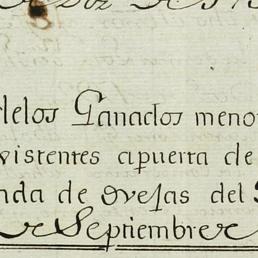 delos Ganados menor
vistentes apuerta de
nda de ovejas del
Septiembre